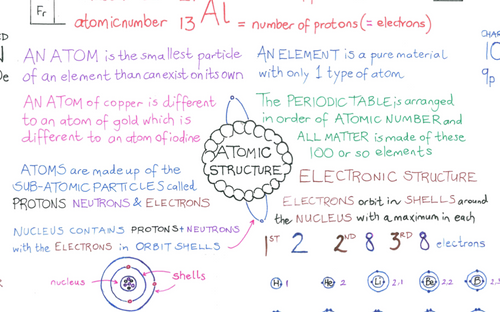 Fr
atomic number 13 Al = number of protons (= electrons)
AN ATOM is the smallest particle
of an element than can exist on its own
AN ELEMENT is a pure material
with only 1 type of atom.
AN ATOM of copper is different
to an atom of gold which is
different to an atom of iodine
The PERIODIC TABLE is arranged
in order of ATOMIC NUMBER and
ALL MATTER is made of these
100 or so elements
ATOMIC
STRUCTURE
ATOMS are made up of the
SUB-ATOMIC PARTICLES called
PROTONS NEUTRONS & ELECTRONS
NUCLEUS CONTAINS PROTONS + NEUTRONS
with the ELECTRONS in ORBIT SHELLS
nucleus
shells
ELECTRONIC STRUCTURE
ELECTRONS orbit in SHELLS around
the NUCLEUS with a maximum in each
1ST 2 2ND 8 3RD 8 electrons
H 1 He 2 Li 2.1 Be 2.2 B 2.3
10
9p